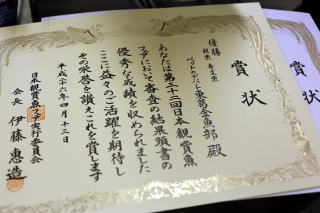 賞状
優勝
親魚 青文魚
ペットのデパート東葛金魚部 殿
あなたは第三十二回日本観賞魚
フェアにおいて審査の結果頭書の
優秀な成績を収められました
ここに益々のご活躍を期待し
その栄誉を讃えこれを賞します
平成二十六年四月十三日
日本観賞魚フェア実行委員会
会長 伊藤惠造
賞状